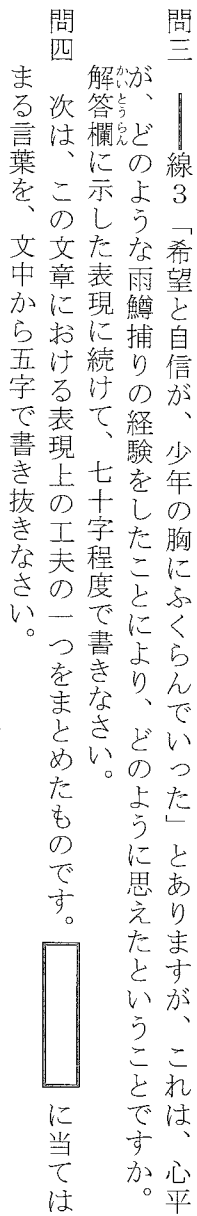 問三　――線３「希望と自信が、少年の胸にふくらんでいった」とありますが、これは、心平
が、どのような雨鱒捕りの経験をしたことにより、どのように思えたということですか。
解答欄に示した表現に続けて、七十字程度で書きなさい。
かいとうらん
問四　次は、この文章における表現上の工夫の一つをまとめたものです。　　　に当ては
まる言葉を、文中から五字で書き抜きなさい。